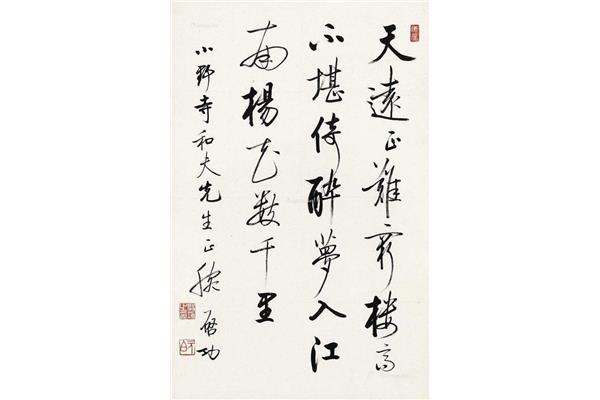 天遠正難窮樓高
不堪倚醉夢入江
南楊花數千里
小野寺和夫先生正腕 啓功